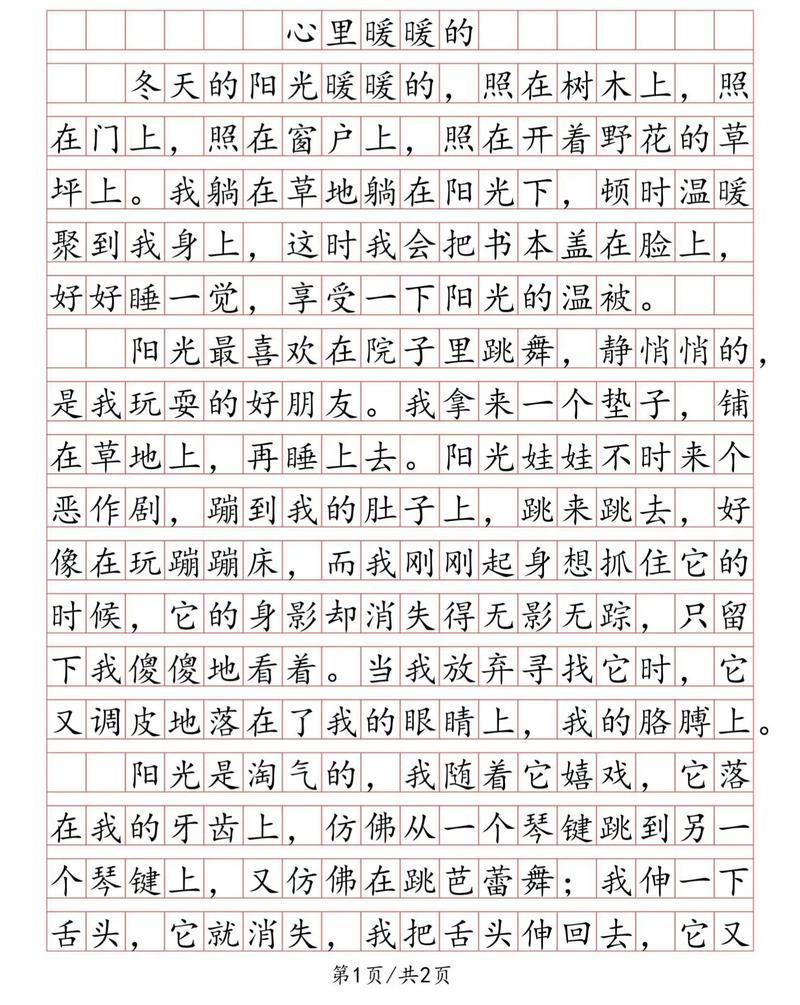 心里暖暖的
冬天的阳光暖暖的，照在树木上，照
在门上，照在窗户上，照在开着野花的草
坪上。我躺在草地躺在阳光下，顿时温暖
聚到我身上，这时我会把书本盖在脸上，
好好睡一觉，享受一下阳光的温被。
阳光最喜欢在院子里跳舞，静悄悄的，
是我玩耍的好朋友。我拿来一个垫子，铺
在草地上，再睡上去。阳光娃娃不时来个
恶作剧，蹦到我的肚子上，跳来跳去，好
像在玩蹦蹦床，而我刚刚起身想抓住它的
时候，它的身影却消失得无影无踪，只留
下我傻傻地看着。当我放弃寻找它时，它
又调皮地落在了我的眼睛上，我的胳膊上。
阳光是淘气的，我随着它嬉戏，它落
在我的牙齿上，仿佛从一个琴键跳到另一
个琴键上，又仿佛在跳芭蕾舞；我伸一下
舌头，它就消失，我把舌头伸回去，它又
第1页/共2页